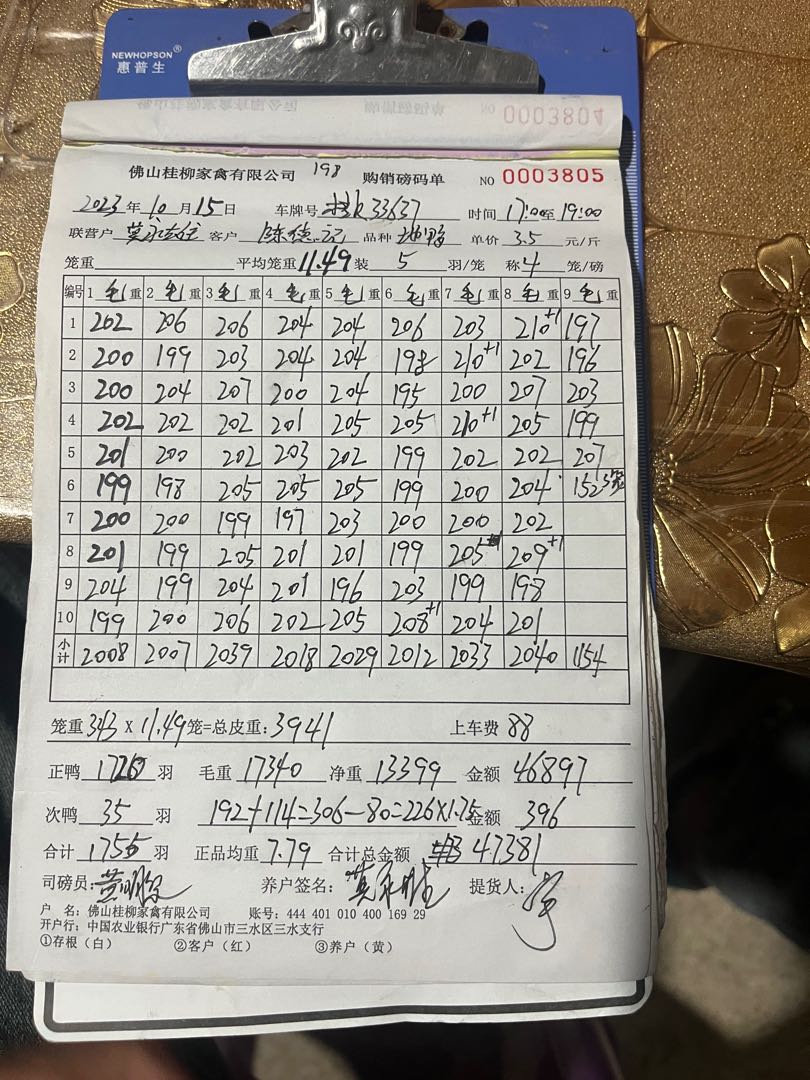 NEWHOPSON®
惠普生
NO 0003804
佛山桂柳家禽有限公司 198 购销磅码单 NO 0003805
2023年10月15日 车牌号 33637 时间17:00至19:00
联营户 客户 品种 单价 3.5 元/斤
笼重 平均笼重11.49装 5 羽/笼 称4 笼/磅
编号 1毛重 2毛重 3毛重 4毛重 5毛重 6毛重 7毛重 8毛重 9毛重
1 202 206 206 204 204 206 203 210+1 197
2 200 199 203 204 204 198 210+1 202 196
3 200 204 207 200 204 195 200 207 203
4 202 202 202 201 205 205 210+1 205 199
5 201 200 202 203 202 199 202 202 207
6 199 198 205 205 205 199 200 204 152 3笼
7 200 200 199 197 203 200 200 202
8 201 199 205 201 201 199 205 209+1
9 204 199 204 201 196 203 199 198
10 199 200 206 202 205 208+1 204 201
小计 2008 2007 2039 2018 2029 2012 2033 2040 1154
笼重 343 X 11.49笼=总皮重:3941 上车费 88
正鸭 1720 羽 毛重 17340 净重 13399 金额 46897
次鸭 35 羽 192+114=306-80=226×1.75 金额 396
合计 1755 羽 正品均重 7.79 合计总金额 47381
司磅员: 养户签名: 提货人:
户 名:佛山桂柳家禽有限公司 账号:444 401 010 400 169 29
开户行:中国农业银行广东省佛山市三水区三水支行
①存根(白) ②客户(红) ③养户(黄)